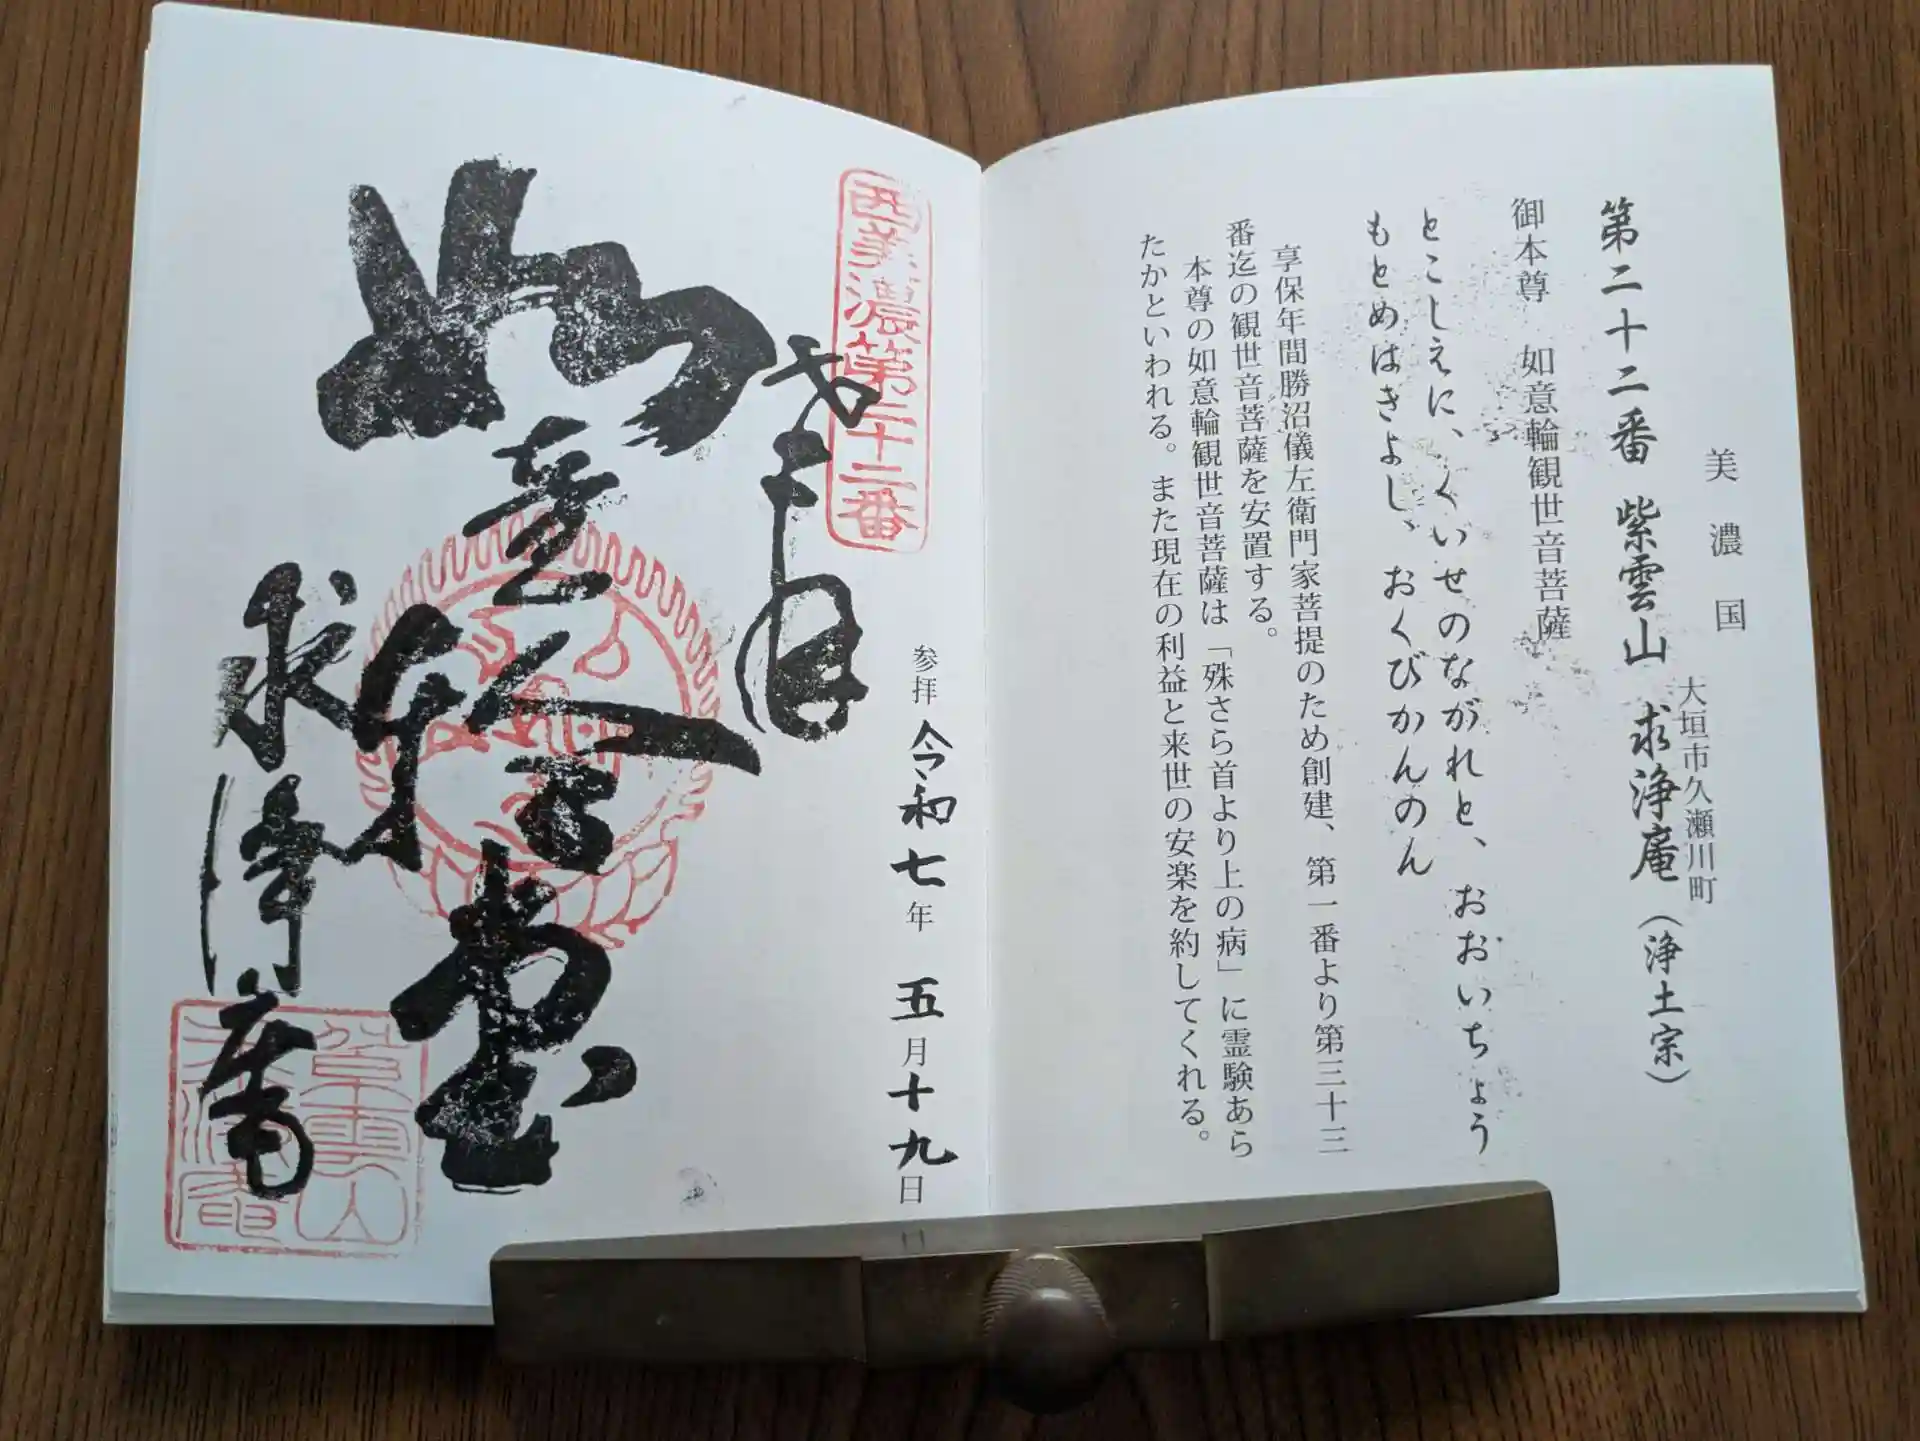 美濃国
大垣市久瀬川町
第二十二番 紫雲山 求浄庵（浄土宗）
御本尊 如意輪観世音菩薩
とこしえに、くいせのながれと、おおいちょう
もとめはきよし、おくびかんのん
享保年間勝沼儀左衛門家菩提のため創建、第一番より第三十三
番迄の観世音菩薩を安置する。
本尊の如意輪観世音菩薩は「殊さら首より上の病」に霊験あら
たかといわれる。また現在の利益と来世の安楽を約してくれる。
参拝 令和七年 五月十九日
西美濃第二十二番
如意輪堂
求浄庵